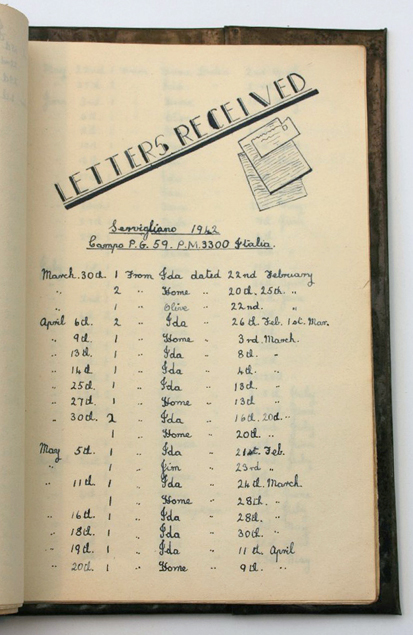 LETTERS RECEIVED
Servigliano 1942
Campo P.G. 59. P.M. 3300 Italia.
March. 30th. 1 From Ida dated 22nd February
" 2 " Home " 20th. 25th. "
" 1 " Olive " 22nd. "
April 6th. 2 " Ida " 26th Feb. 1st. Mar.
" 9th. 1 " Home " 3rd. March.
" 13th. 1 " Ida " 8th. "
" 14th. 1 " Ida " 4th. "
" 25th. 1 " Ida " 18th. "
" 27th. 1 " Home " 13th "
" 30th. 2 " Ida " 16th. 20th. "
1 " Home " 20th. "
May 5th. 1 " Ida " 21st. Feb.
" 1 " Jim " 23rd "
" 11th. 1 " Ida " 24th. March.
1 " Home " 28th. "
" 16th. 1 " Ida " 28th. "
" 18th. 1 " Ida " 30th. "
" 19th. 1 " Ida " 11th April
" 20th. 1 " Home " 9th. "